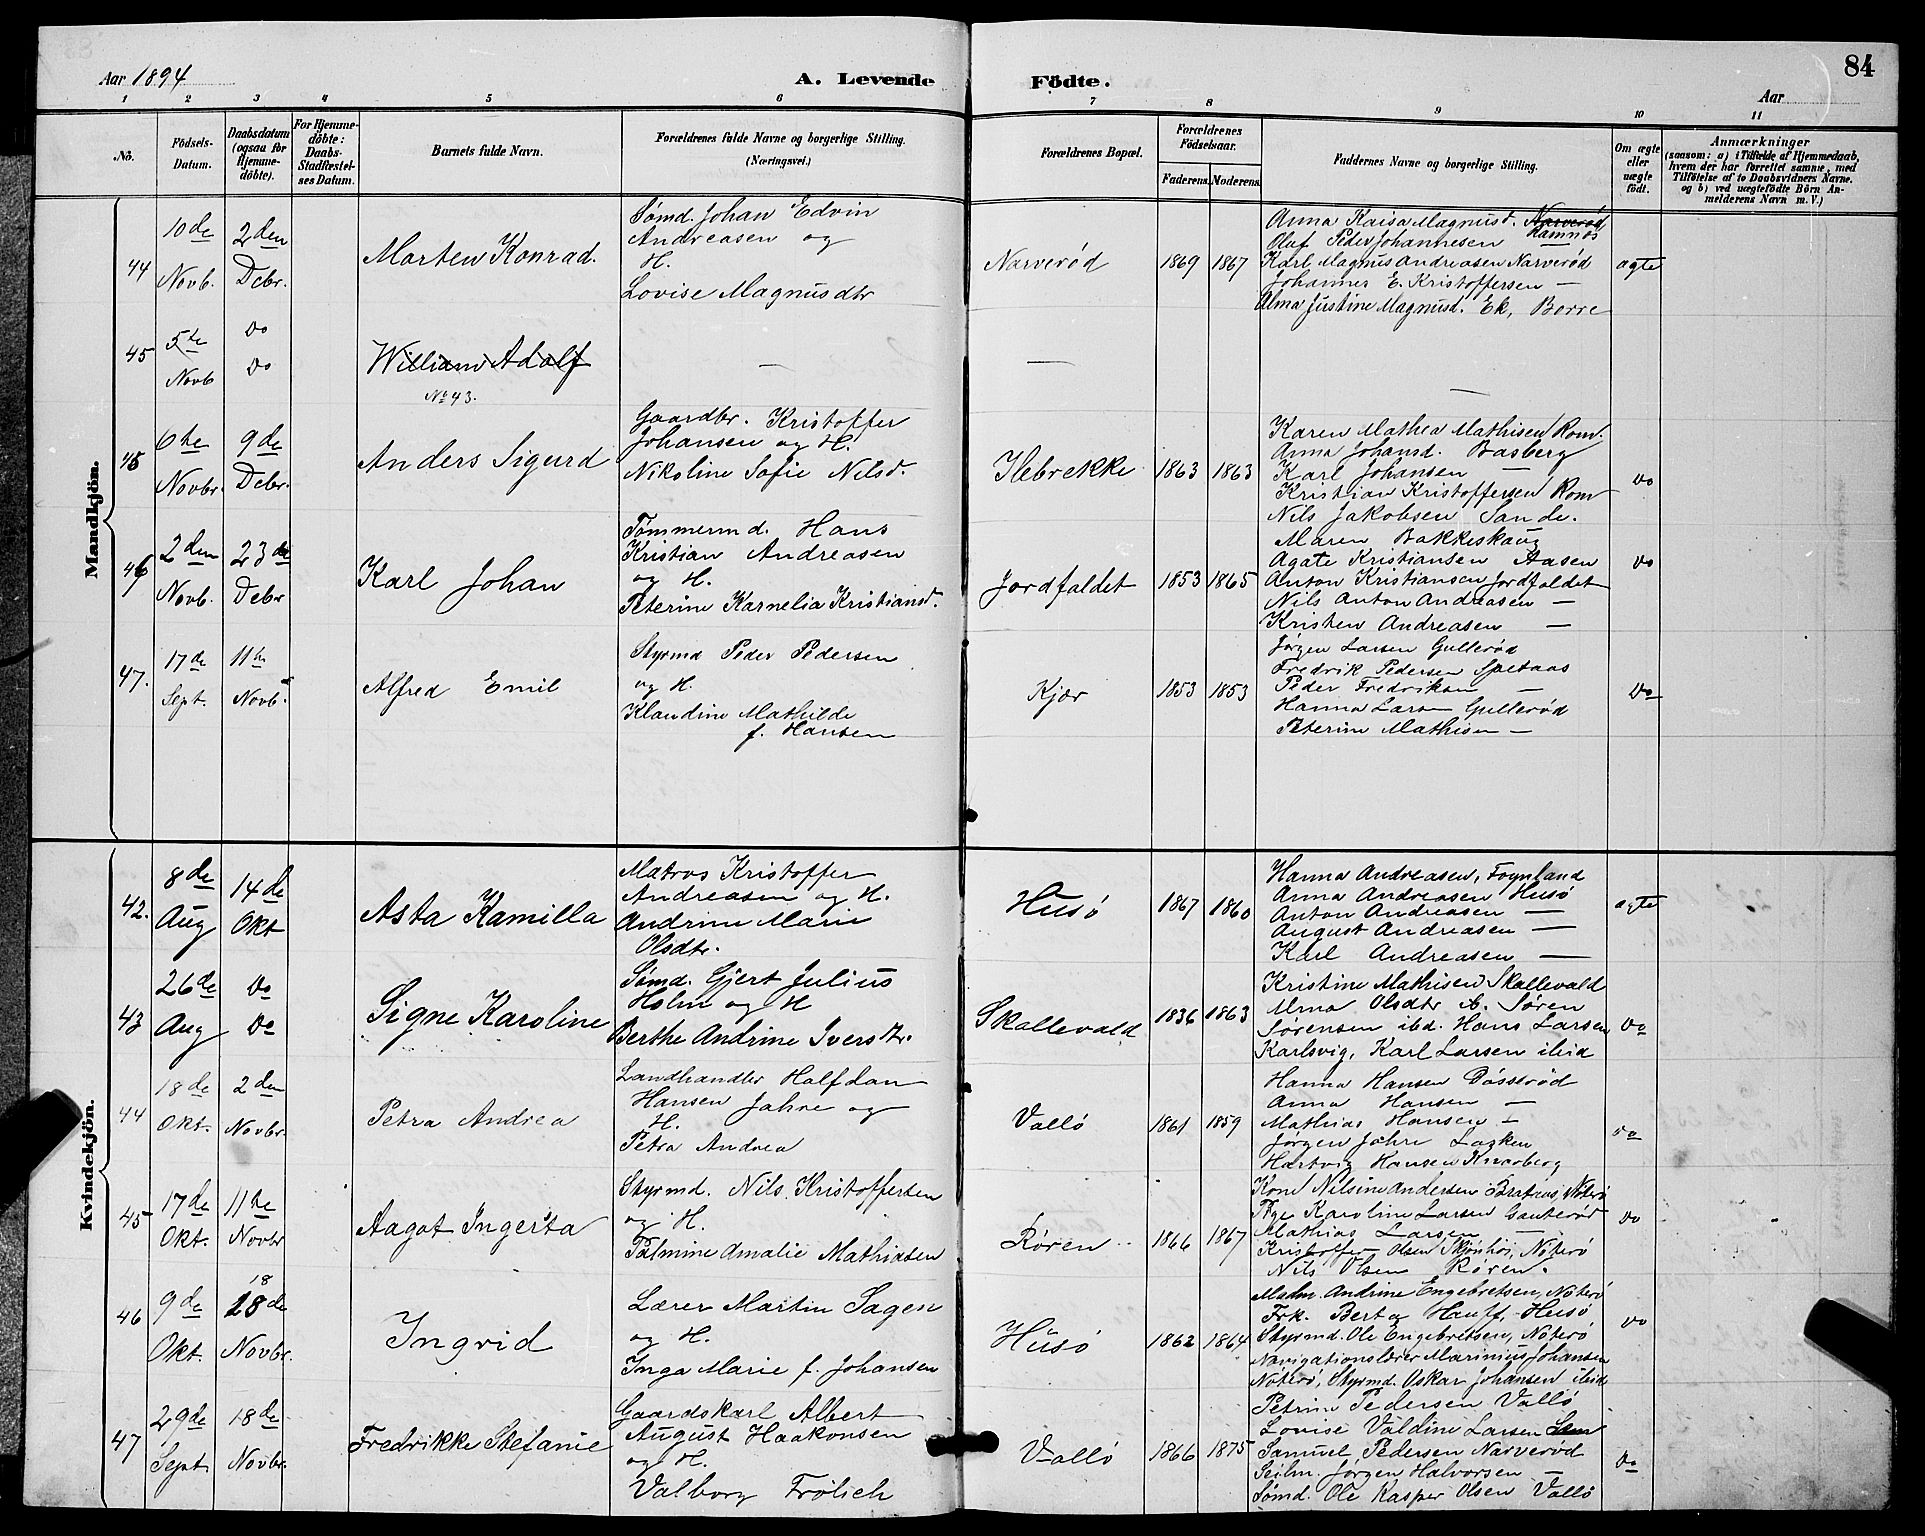 Aar 1894
A. Levende Födte.
84
Aar
1 2 3 4 5 6 7 8 9 10 11
No.
Födsels-Datum.
Daabsdatum (ogsaa for Hjemme-döbte).
For Hjemme-döbte: Daabs-Stadfæstel-ses Datum.
Barnets fulde Navn.
Forældrenes fulde Navne og borgerlige Stilling. (Næringsvei.)
Forældrenes Bopæl.
Forældrenes Födselsaar.
Faderens. Moderens.
Faddernes Navne og borgerlige Stilling.
Om ægte eller uægte födt.
Anmærkninger
(saasom: a) i Tilfælde af Hjemmedaab, hvem der har forrettet samme, med Tilföielse af to Daabsvidners Navne. og b) ved uægtefödte Börn Anmelderens Navn m. V.)
Mandkjön.
44
10de Novb.
2den Debr.
Morten Konrad.
Sømd. Johan Edvin
Andreasen og
H.
Lovise Magnusdtr
Narverød
1869 1867
Anna Kaisa Magnusd. Narverød
Ramnes
Oluf Peder Johannesen —
Karl Magnus Andreasen Narverød
Johannes E. Kristoffersen —
Alma Justine Magnusd. Ek, Borre
ægte
45
5te Novb
do do
William Adolf
No 43.
—
—
—
45
6te Novbr.
9de Debr.
Anders Sigurd
Gaardbr. Kristoffer
Johansen og H.
Nikoline Sofie Nilsd.
Ilebrekke
1863 1863
Karen Mathea Mathisen Rom.
Anna Johansd. Basberg
Karl Johansen —
Kristian Kristoffersen Rom
Nils Jakobsen Sande.
do
46
2den Novb.
23de Debr
Karl Johan
Tømmermd. Hans
Kristian Andreasen
og H.
Peterine Karnelia Kristiansd.
Jordfaldet
1853 1865
Maren Bakkeskaug
Agate Kristiansen Aasen
Anton Kristiansen Jordfaldet
Nils Anton Andreasen —
Kristen Andreasen —
do
47.
17de Sept.
11te Novb.
Alfred Emil
Styrmd Peder Pedersen
og H.
Klaudine Mathilde
f. Hansen
Kjær
1853 1853
Jørgen Larsen Gullerød
Fredrik Pedersen Spetaas
Peder Fredriksen —
Hanna Larsen Gullerød
Peterine Mathisen —
do
Kvindekjön.
42.
8de Aug
14de Okt
Asta Kamilla
Matros Kristoffer
Andreasen og H.
Andrine Marie
Olsdtr.
Husö
1867 1860
Hanna Andreasen, Foynland
Anna Andreasen Husö
Anton Andreasen —
August Andreasen —
Karl Andreasen —
ægte
43
26de Aug
do do
Signe Karoline
Sømd. Gjert Julius
Holm og H
Berthe Andrine Iversdtr.
Skallevald
1836 1863
Kristine Mathisen Skallevald
Alma Olsdtr ib. Søren
Sørensen ibd. Hans Larsen
Karlsvig, Karl Larsen ibid
do
44
18de Okt.
2den Novbr.
Petra Andrea
Landhandler Halfdan
Hansen Jahre og
H.
Petra Andrea
Vallö
1861 1859
Hanna Hansen
Anna Hansen —
Mathias Hansen —
Jørgen Jahre
Hartvig Hansen Knarberg
do
45
17de Okt.
11te Novbr
Aagot Ingerta
Styrmd. Nils Kristoffersen
og H.
Palmine Amalie Mathiasen
Røren
1866 1867
Kone Nilsine Andersen Brataas, Nöterö
Pige Karoline Larsen Gauterød
Mathias Larsen —
Kristoffer Olsen Nöterö
Nils Olsen Røren.
do
46
9de Okt.
18
18de Novbr.
Ingrid
Lærer Martin Sagen
og H.
Inga Marie f. Johansen
Husö
1862 1864
Madm. Andrine Engebretsen, Nöterö
Frk. Berta Hauff, Husö
Styrmd. Ole Engebretsen, Nöterö
Navigationslærer Marinius Johansen
Nöterö, Styrmd. Oskar Johansen ibid
do
47
29de Sept.
18de Novbr.
Fredrikke Stefanie
Gaardskarl Albert
August Haakonsen
og H.
Valborg Frölich
Vallö
1866 1875
Petrine Pedersen Vallö
Lovise Valdine Larsen
Samuel Pedersen Narverød
Seilm. Jørgen Halvorsen —
Sømd. Ole Kasper Olsen Vallö
do